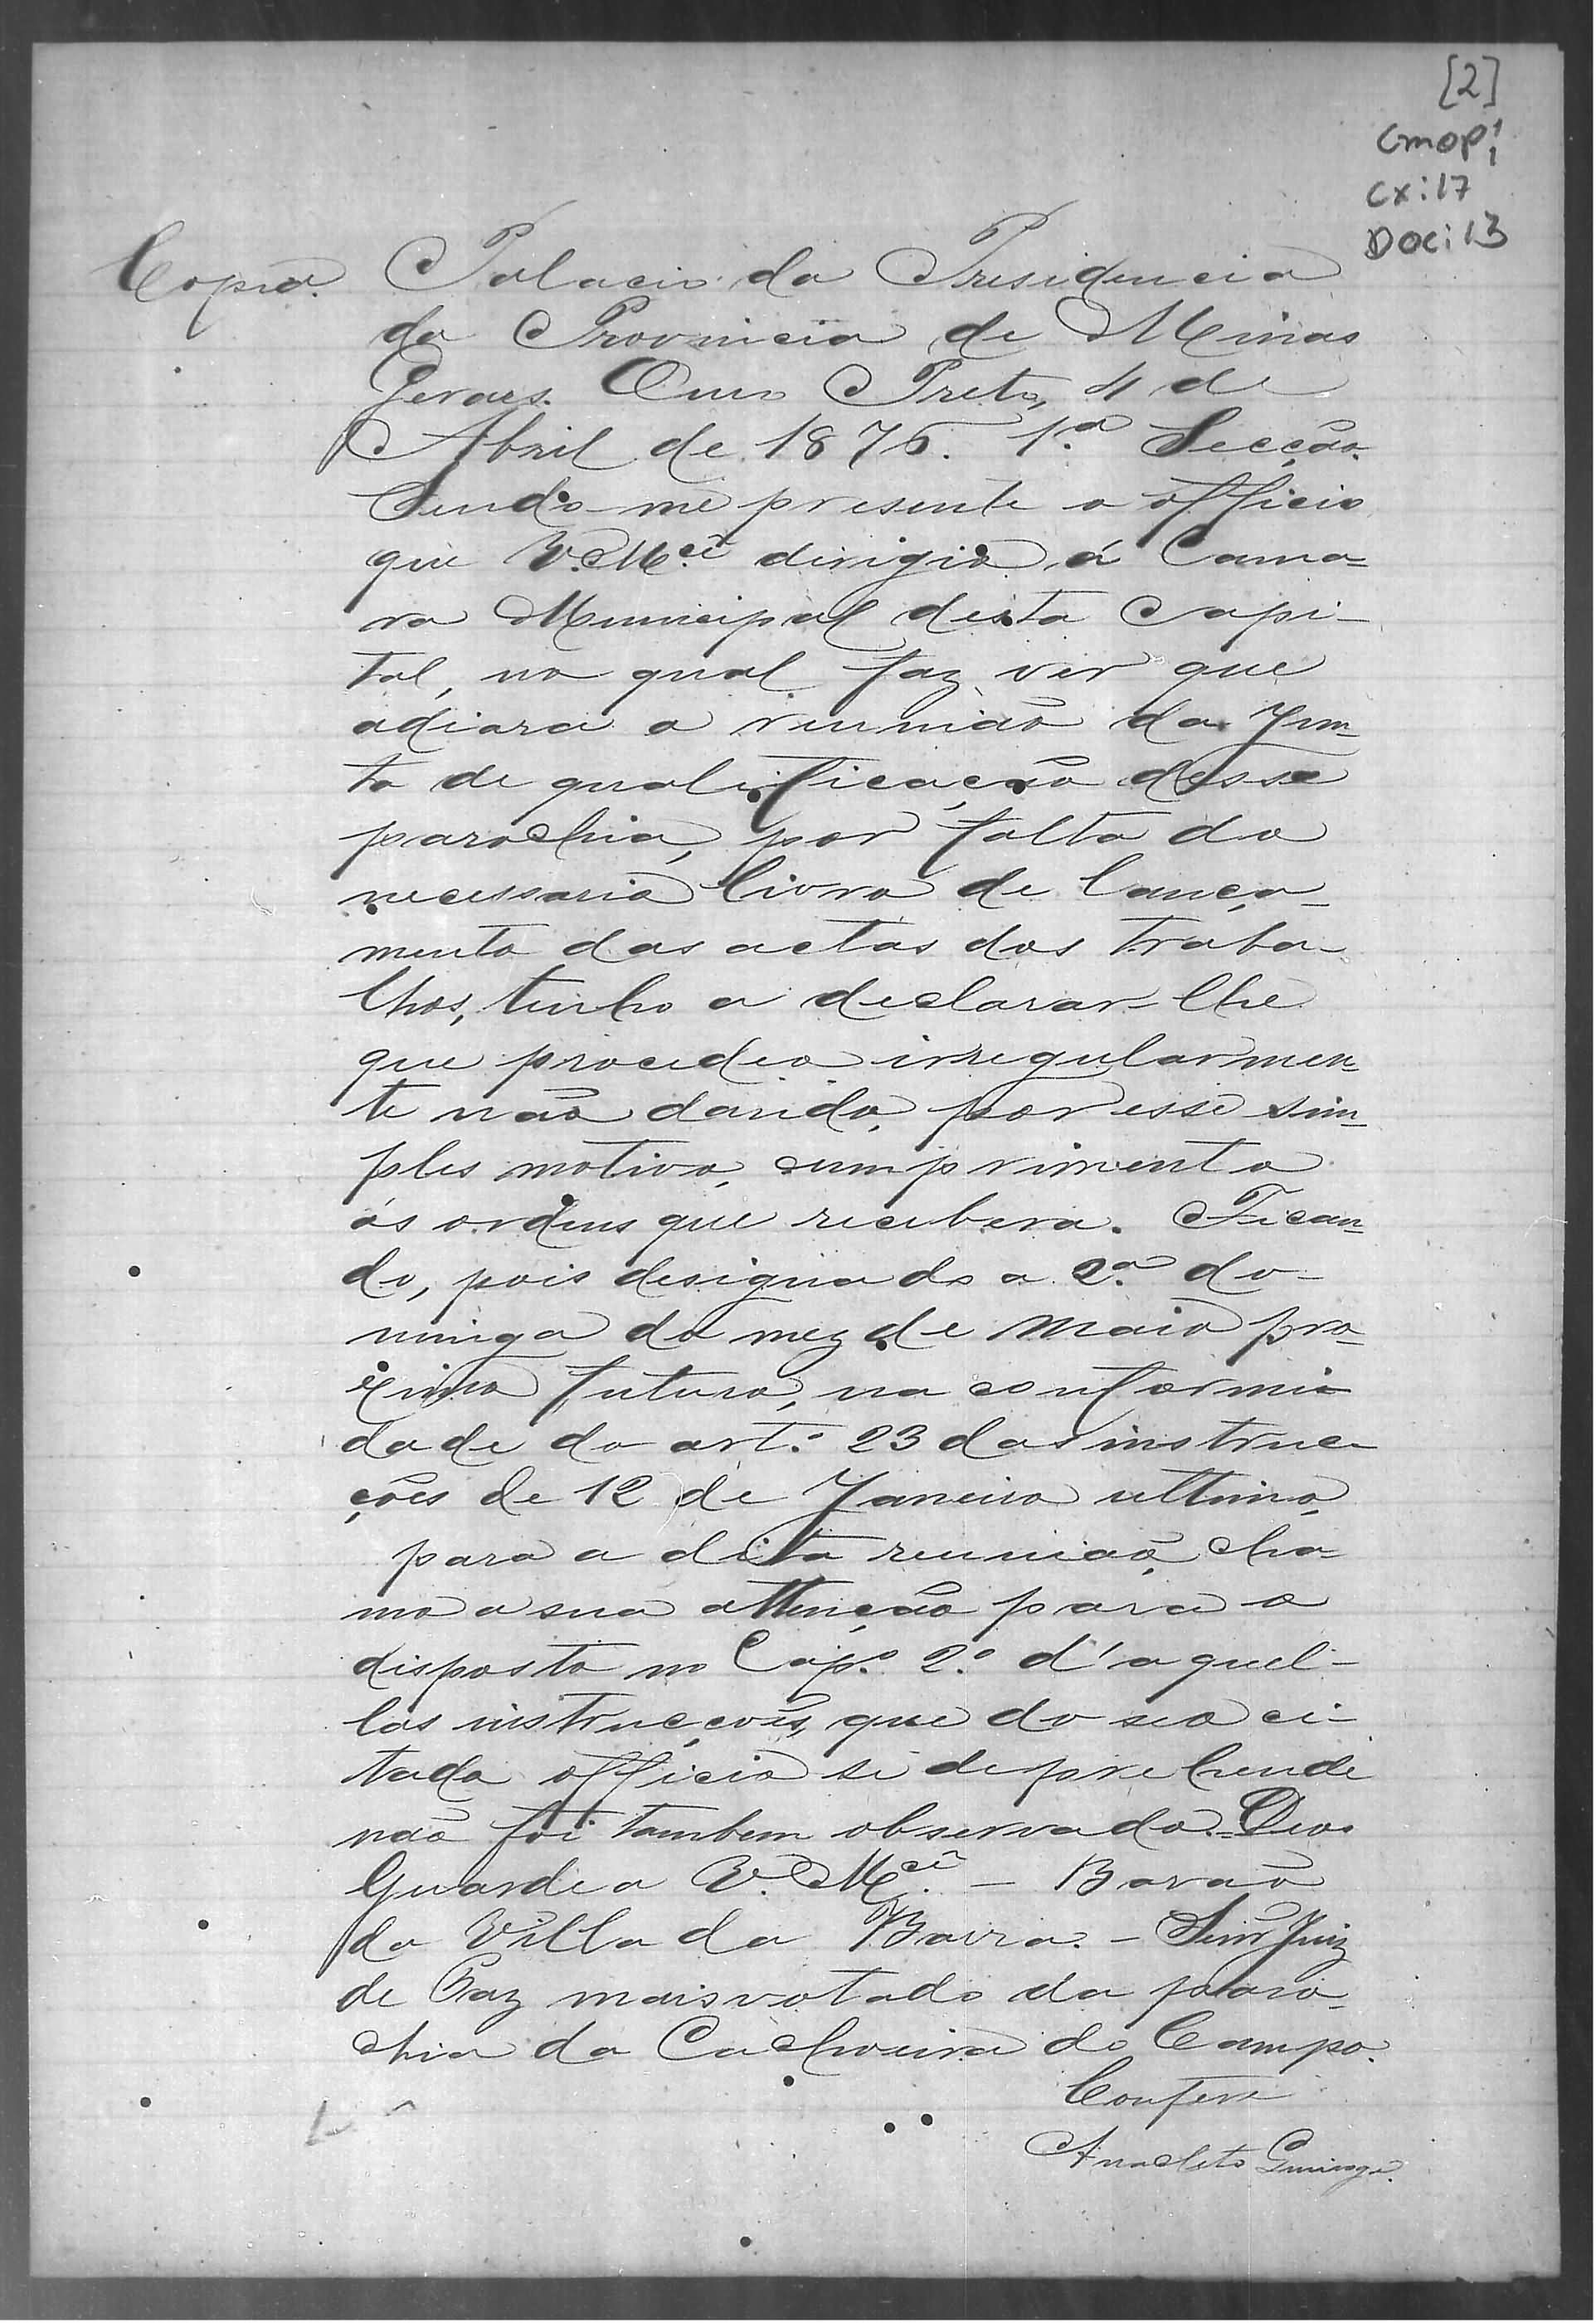 [2]
CMOP
Cx: 17
Doc: 13
Copia. Palacio da Presidencia
da Provincia de Minas
Geraes. Ouro Preto, 4 de
Abril de 1876. 1.ª Secção.
Sendo-me presente o officio
que V. M.cê dirigio á Cama=
ra Municipal desta Capi-
tal, no qual faz ver que
adiara a reunião da Jun=
ta de qualificação dessa
parochia, por falta do
necessario livro de lança-
mento das actas dos traba-
lhos, tenho a declarar-lhe
que procedeo irregularmen=
te não dando, por esse sim=
ples motivo, cumprimento
ás ordens que recebera. Fican=
do, pois designado a 2.ª do-
minga do mez de Maio pro-
ximo futuro, na conformi-
dade do art.º 23 das instruc-
ções de 12 de Janeiro ultimo,
para a dita reunião, cha-
mo a sua attenção para o
disposto no Cap.º 2.º d'aquel-
las instrucções, que do seo ci-
tado officio se deprehende
não foi tambem observado. = Deos
Guarde a V. M.cê - Barão
da Villa da Barra. - Senr Juiz
de Paz mais votado da paro-
chia da Cachoeira do Campo.
Confere
Anacleto